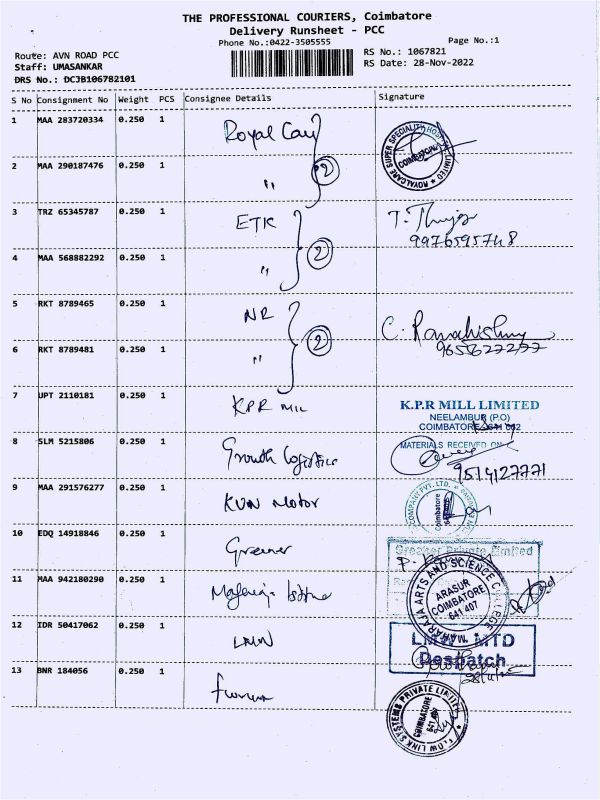 THE PROFESSIONAL COURIERS, Coimbatore
Delivery Runsheet - PCC
Phone No.:0422-3505555
Page No.:1
Route: AVN ROAD PCC
Staff: UMASANKAR
DRS No.: DCJB106782101
RS No.: 1067821
RS Date: 28-Nov-2022
S No Consignment No Weight PCS Consignee Details Signature
1 MAA 283720334 0.250 1 Royal Care
ROYALCARE SUPER SPECIALITY HOSPITAL LIMITED
COIMBATORE
2 MAA 290187476 0.250 1 " 2
3 TRZ 65345787 0.250 1 ETK T.
9976595748
4 MAA 568882292 0.250 1 " 2
5 RKT 8789465 0.250 1 NR C.
6 RKT 8789481 0.250 1 " 2
7 UPT 2110181 0.250 1 KPR Mill
K.P.R MILL LIMITED
NEELAMBUR (P.O)
COIMBATORE-641 062
MATERIALS RECEIVED ON
8 SLM 5215806 0.250 1 Growth Logistics
9514127771
9 MAA 291576277 0.250 1 KUN Motor
COMPANY PVT. LTD.
Coimbatore
10 EDQ 14918846 0.250 1 Greener
Private Limited
11 MAA 942180290 0.250 1
MAHARAJA ARTS AND SCIENCE COLLEGE
ARASUR
COIMBATORE
641 407
12 IDR 50417062 0.250 1 LMW
LMW MTD
Despatch
13 BNR 184056 0.250 1
FLOW LINK SYSTEMS PRIVATE LIMITED
COIMBATORE
641 407